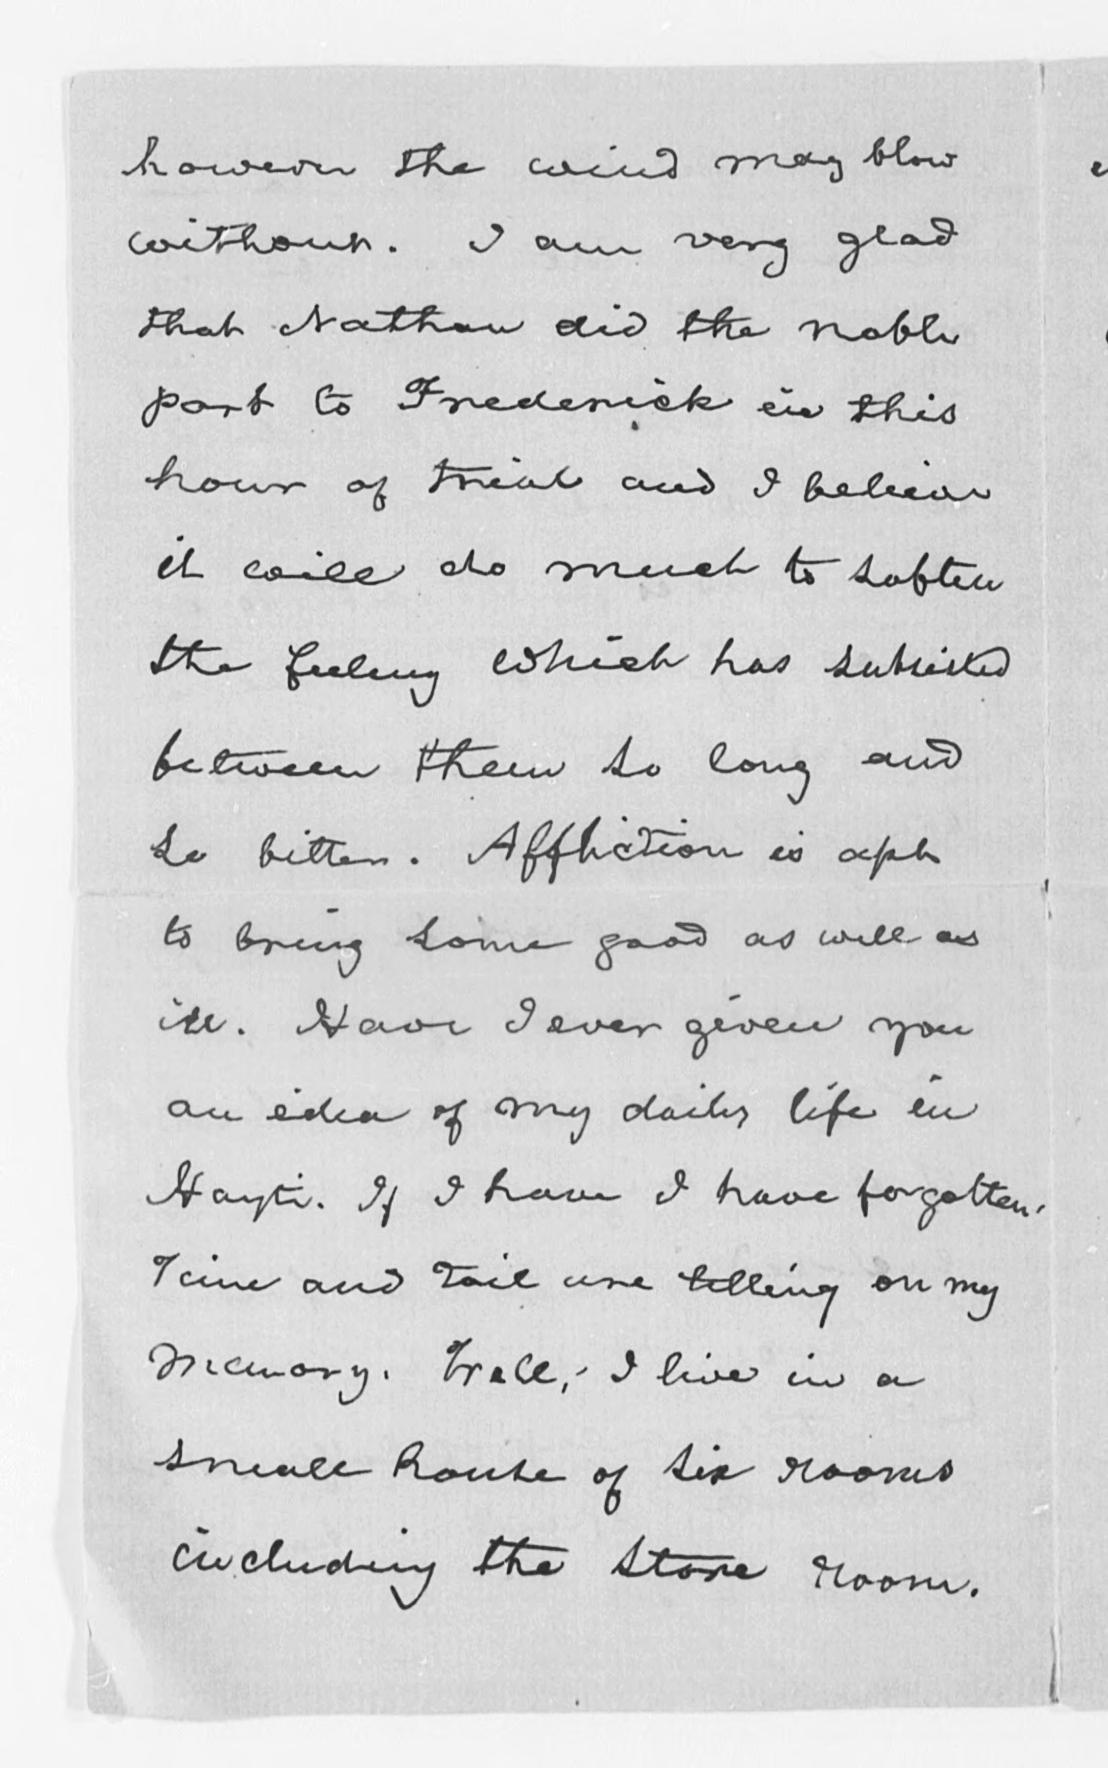 however the wind may blow
without. I am very glad
that Nathan did the noble
part to Frederick in this
hour of trial and I believe
it will do much to soften
the feeling which has subsisted
between them so long and
so bitter. Affliction is apt
to bring some good as well as
ill. Have I ever given you
an idea of my daily life in
Hayti. If I have I have forgotten.
Time and toil are telling on my
memory. Well, I live in a
small house of six rooms
including the store room.